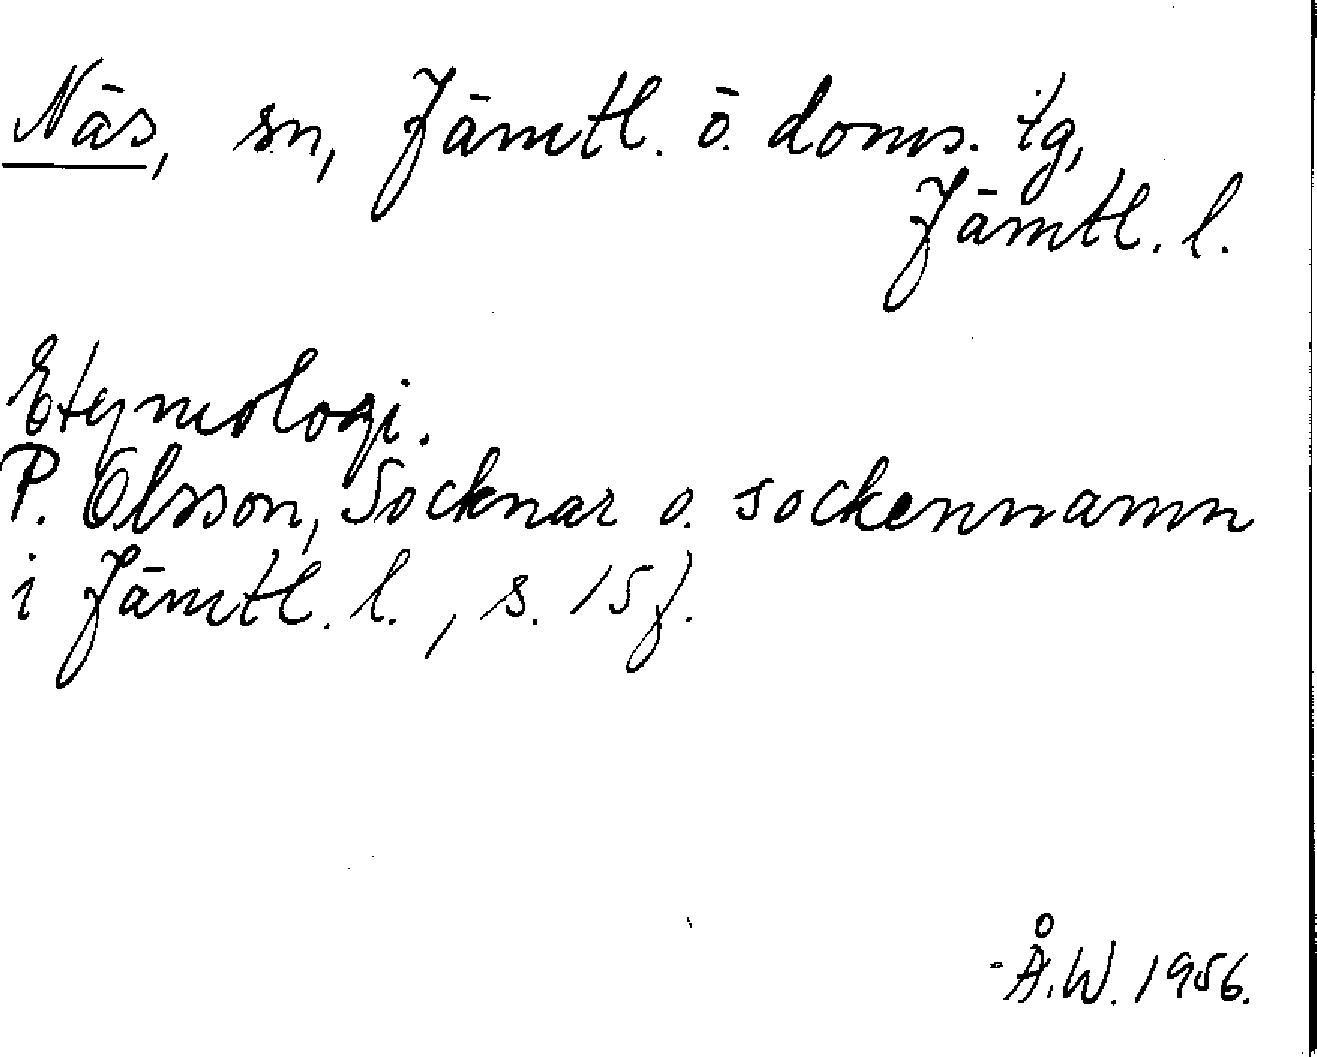 Näs, sn, Jämtl. ö. doms. tg,
Jämtl. l.
Etymologi.
P. Olsson, Socknar o. sockennamn
i Jämtl. l., s. 15 f.
Å.W. 1956.